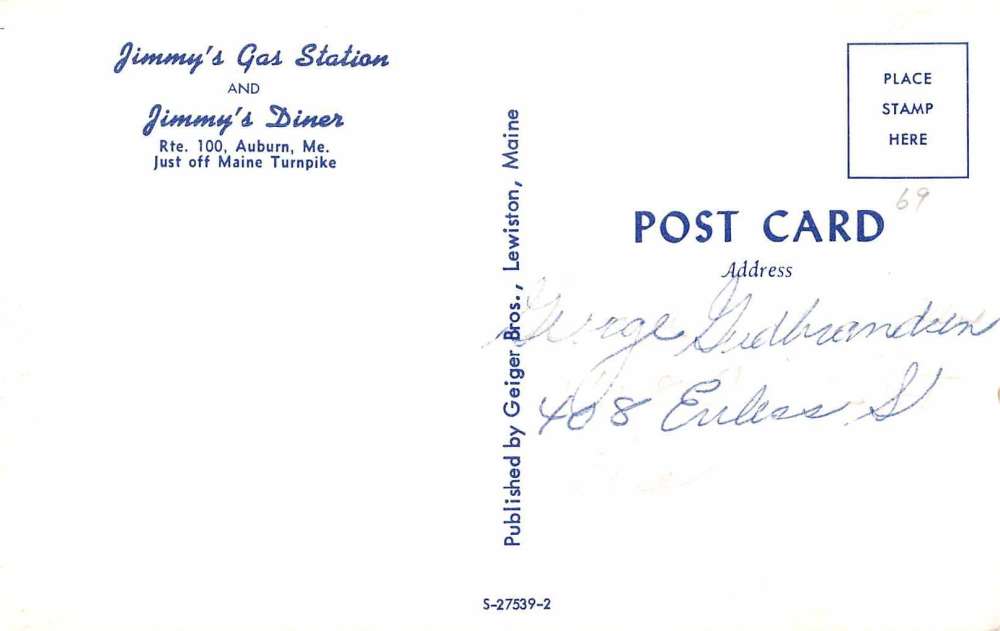 Jimmy's Gas Station
AND
Jimmy's Diner
Rte. 100, Auburn, Me.
Just off Maine Turnpike
Published by Geiger Bros., Lewiston, Maine
PLACE
STAMP
HERE
69
POST CARD
Address
George Gudbrandsen
408 Euless St
S-27539-2